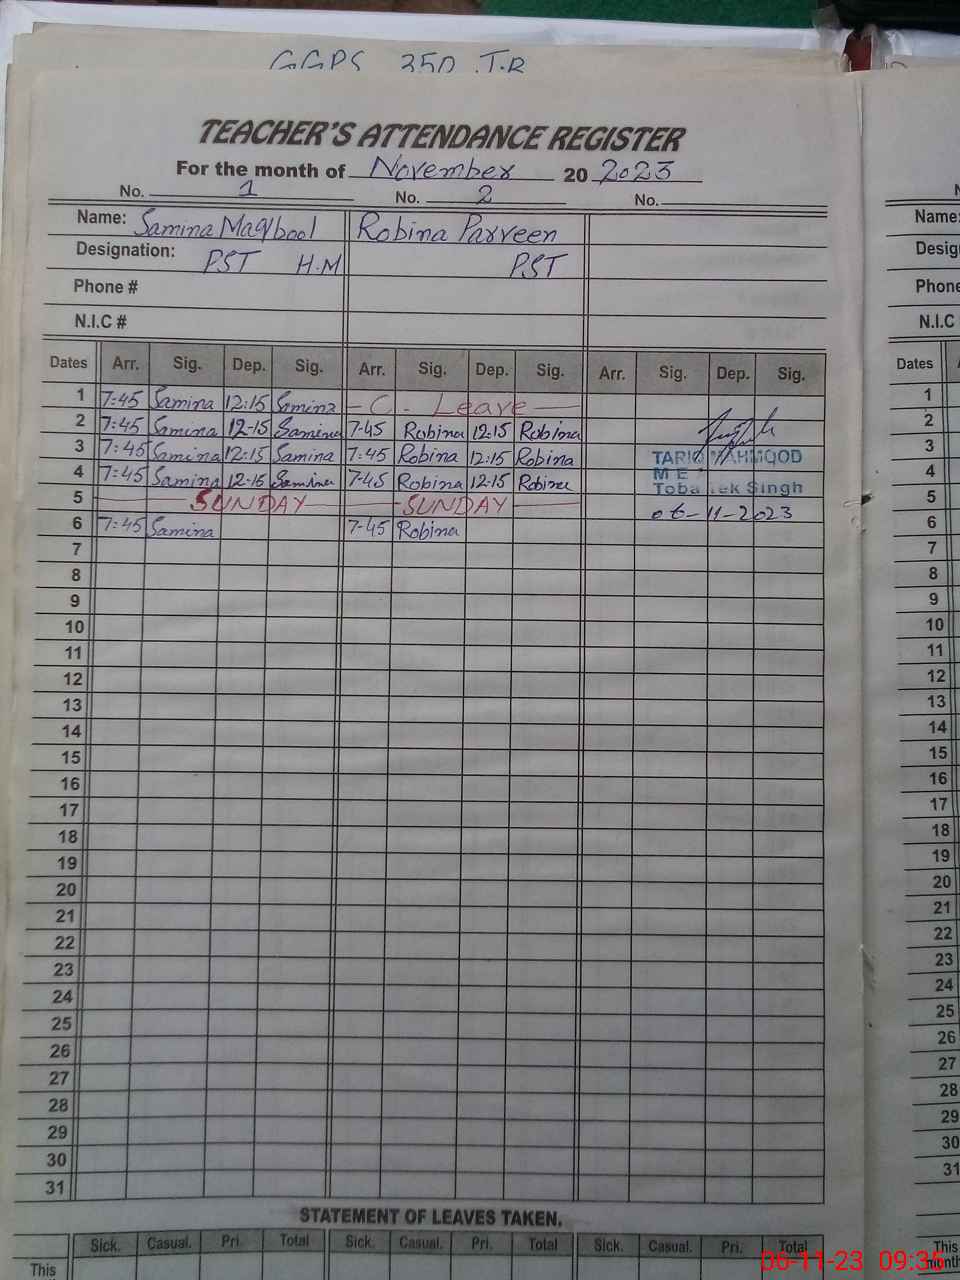 GGPS 350 J.B
TEACHER'S ATTENDANCE REGISTER
For the month of November 20 2023
No. 1 No. 2 No.
Name: Samina Maqbool Robina Parveen
Designation: PST H.M PST
Phone #
N.I.C #
Dates Arr. Sig. Dep. Sig. Arr. Sig. Dep. Sig. Arr. Sig. Dep. Sig.
1 7:45 Samina 12:15 Samina - C. Leave
2 7:45 Samina 12-15 Samina 7-45 Robina 12:15 Robina
3 7:45 Samina 12:15 Samina 7:45 Robina 12:15 Robina TARIQ MAHMOOD
4 7:45 Samina 12-15 Samina 7-45 Robina 12-15 Robina M E
Toba Tek Singh
5 SUNDAY SUNDAY
06-11-2023
6 7:45 Samina 7-45 Robina
7
8
9
10
11
12
13
14
15
16
17
18
19
20
21
22
23
24
25
26
27
28
29
30
31
STATEMENT OF LEAVES TAKEN.
Sick. Casual. Pri. Total Sick. Casual. Pri. Total Sick. Casual. Pri. Total
This
Name:
Phone
N.I.C
Dates
1
2
3
4
5
6
7
8
9
10
11
12
13
14
15
16
17
18
19
20
21
22
23
24
25
26
27
28
29
30
31
This
month
06-11-23 09:35